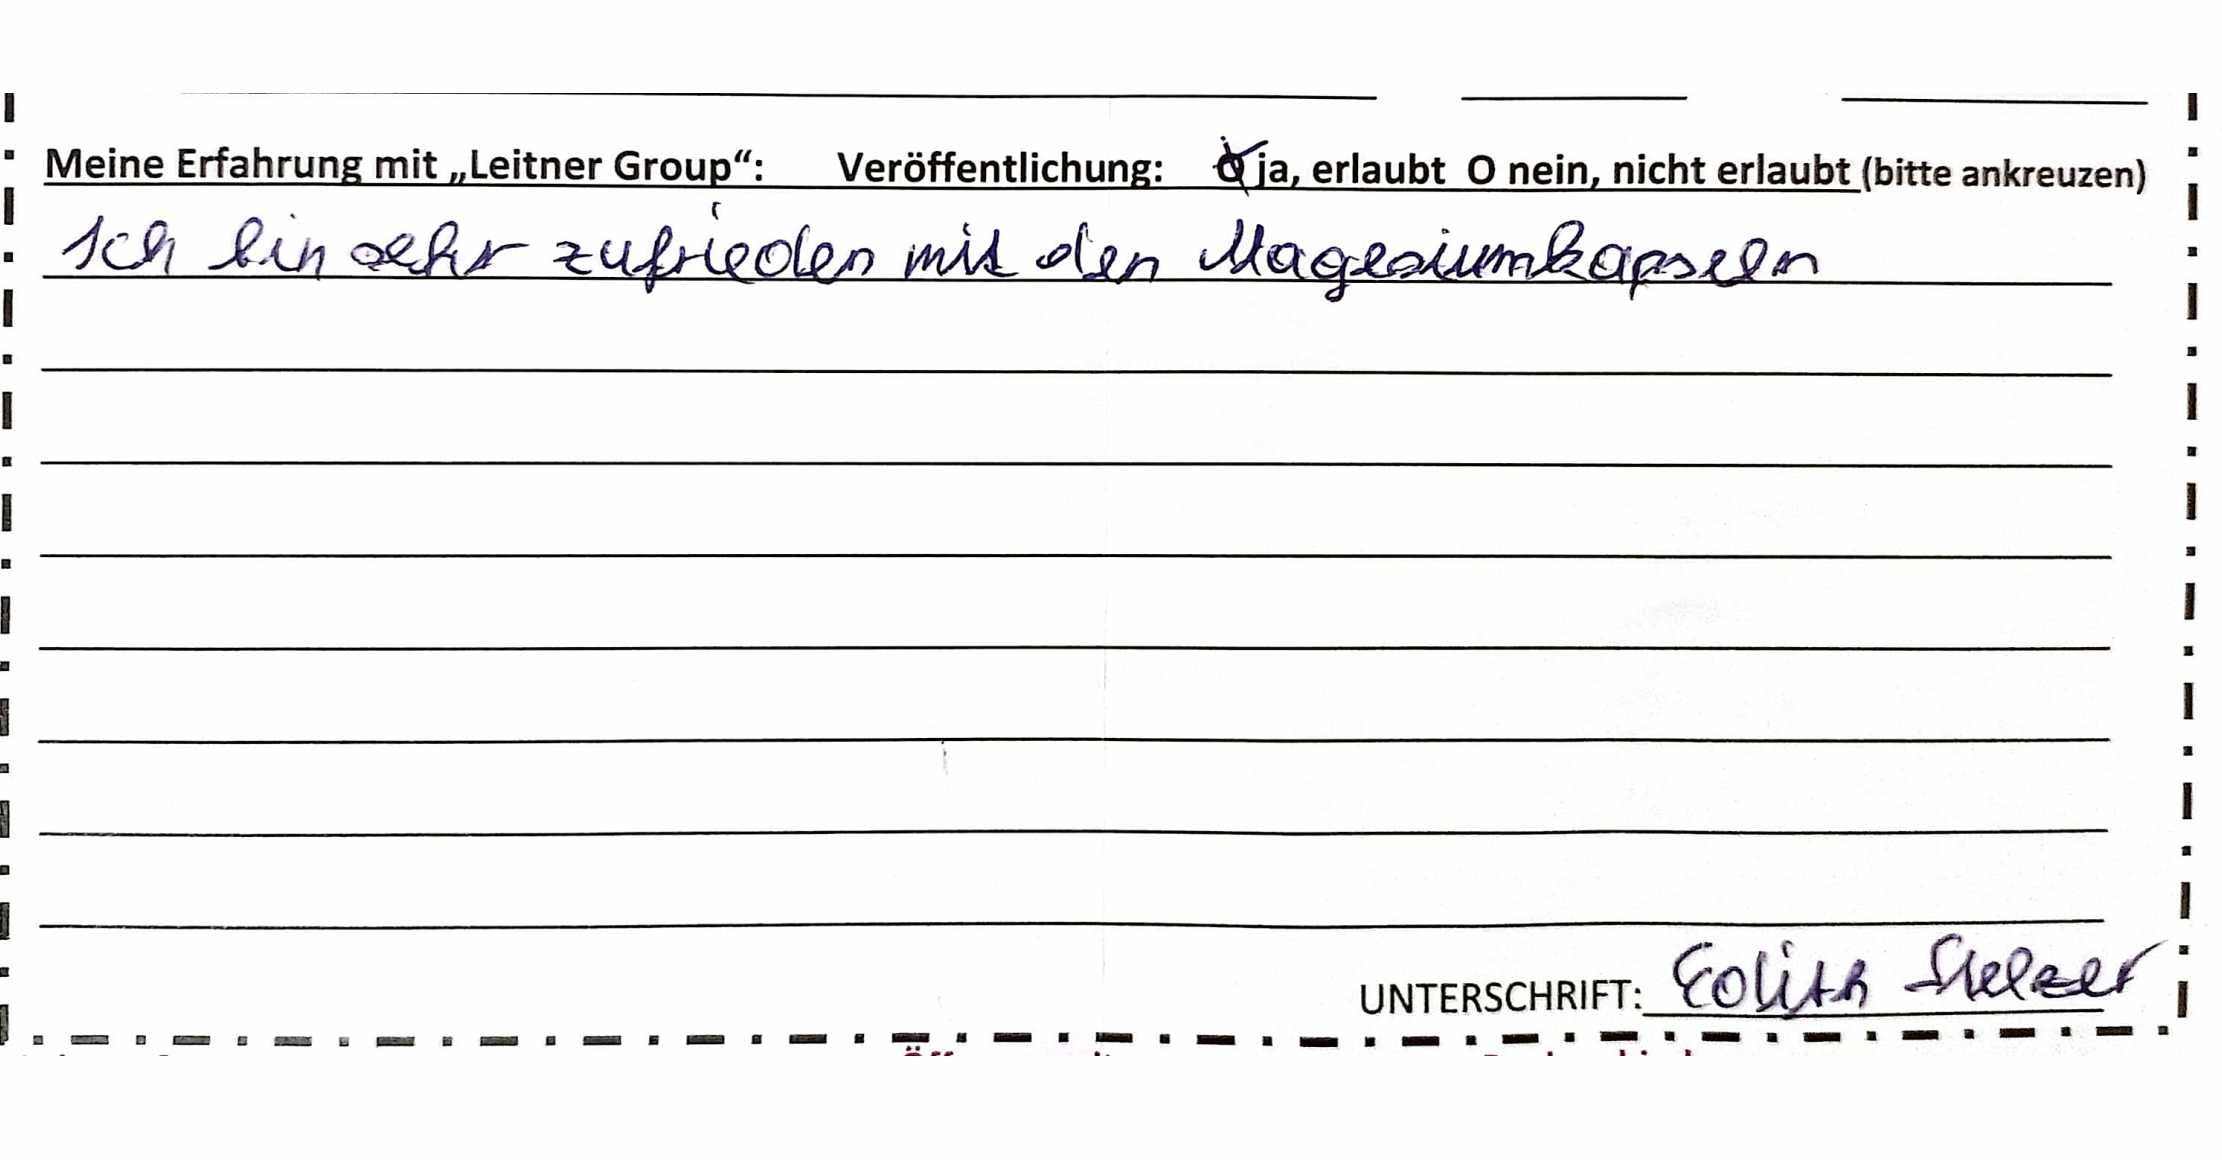 Meine Erfahrung mit „Leitner Group“: Veröffentlichung: O ja, erlaubt O nein, nicht erlaubt (bitte ankreuzen)
Ich bin sehr zufrieden mit den Magesiumkapseln
UNTERSCHRIFT: Edith Stelzer